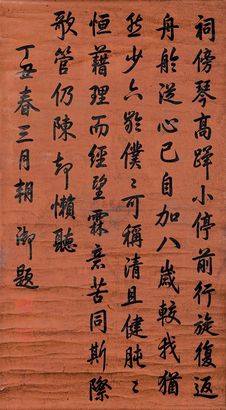 祠傍琴高蹕小停前行旋復返
舟舲從心已自加八歲較我猶
然少六齡僕僕可稱清且健肫肫
恒藉理而經望霖意苦同斯際
歌管仍陳却懶聽
丁丑春三月朝御題